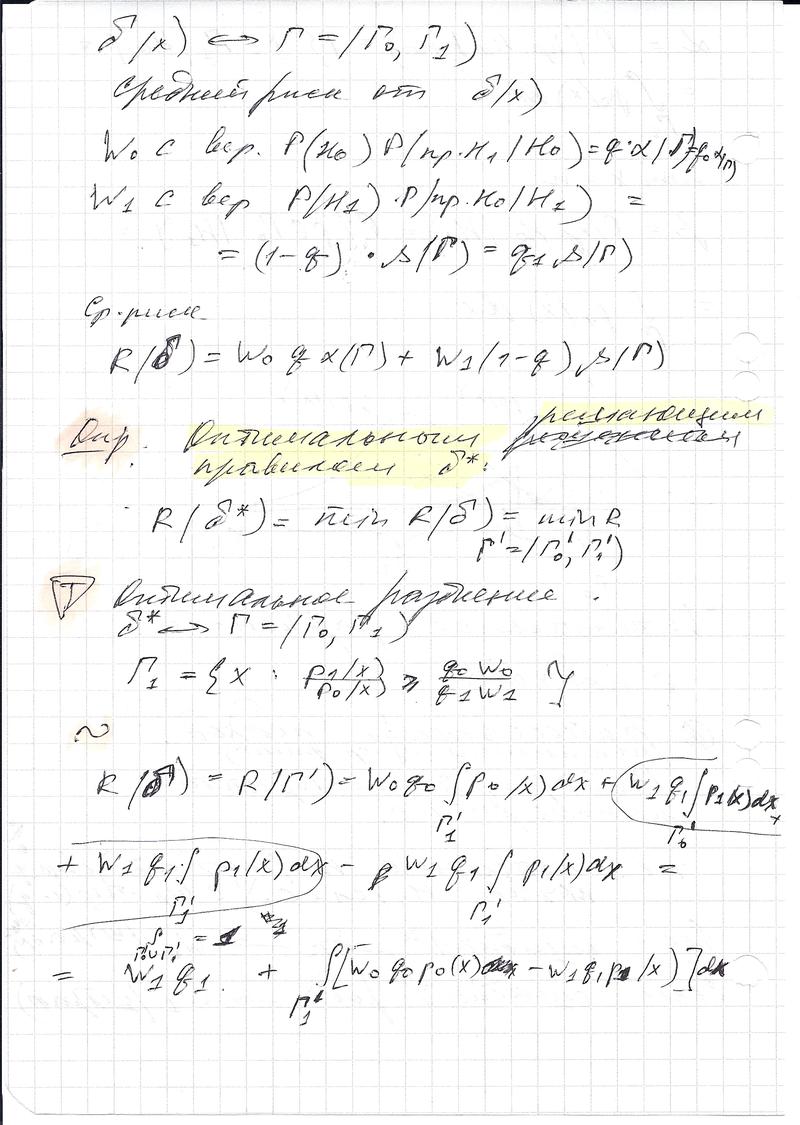 δ(x) ↔ Γ = (Γ₀, Γ₁)
Средний риск от δ(x)
W₀ с вер. P(H₀) P(пр. H₁ | H₀) = q·α(Γ) = q₀ α(Γ)
W₁ с вер P(H₁)·P(пр. H₀ | H₁) =
= (1-q)·β(Γ) = q₁ β(Γ)
Ср. риск
R(δ) = W₀ q α(Γ) + W₁(1-q) β(Γ)
Опр. Оптимальным решающим
правилом δ*:
R(δ*) = min R(δ) = min R
Γ' = (Γ₀', Γ₁')
T Оптимальное разбиение.
δ* ↔ Γ = (Γ₀, Γ₁)
Γ₁ = { x : p₁(x)/p₀(x) ≥ q₀ W₀ / q₁ W₁ }
~
R(δ) = R(Γ') = W₀ q₀ ∫_{Γ₁'} p₀(x) dx + W₁ q₁ ∫_{Γ₀'} p₁(x) dx +
+ W₁ q₁ ∫_{Γ₁'} p₁(x) dx - W₁ q₁ ∫_{Γ₁'} p₁(x) dx =
∫_{Γ₀'∪Γ₁'} = 1
= W₁ q₁ + ∫_{Γ₁'} [W₀ q₀ p₀(x) - W₁ q₁ p₁(x)] dx